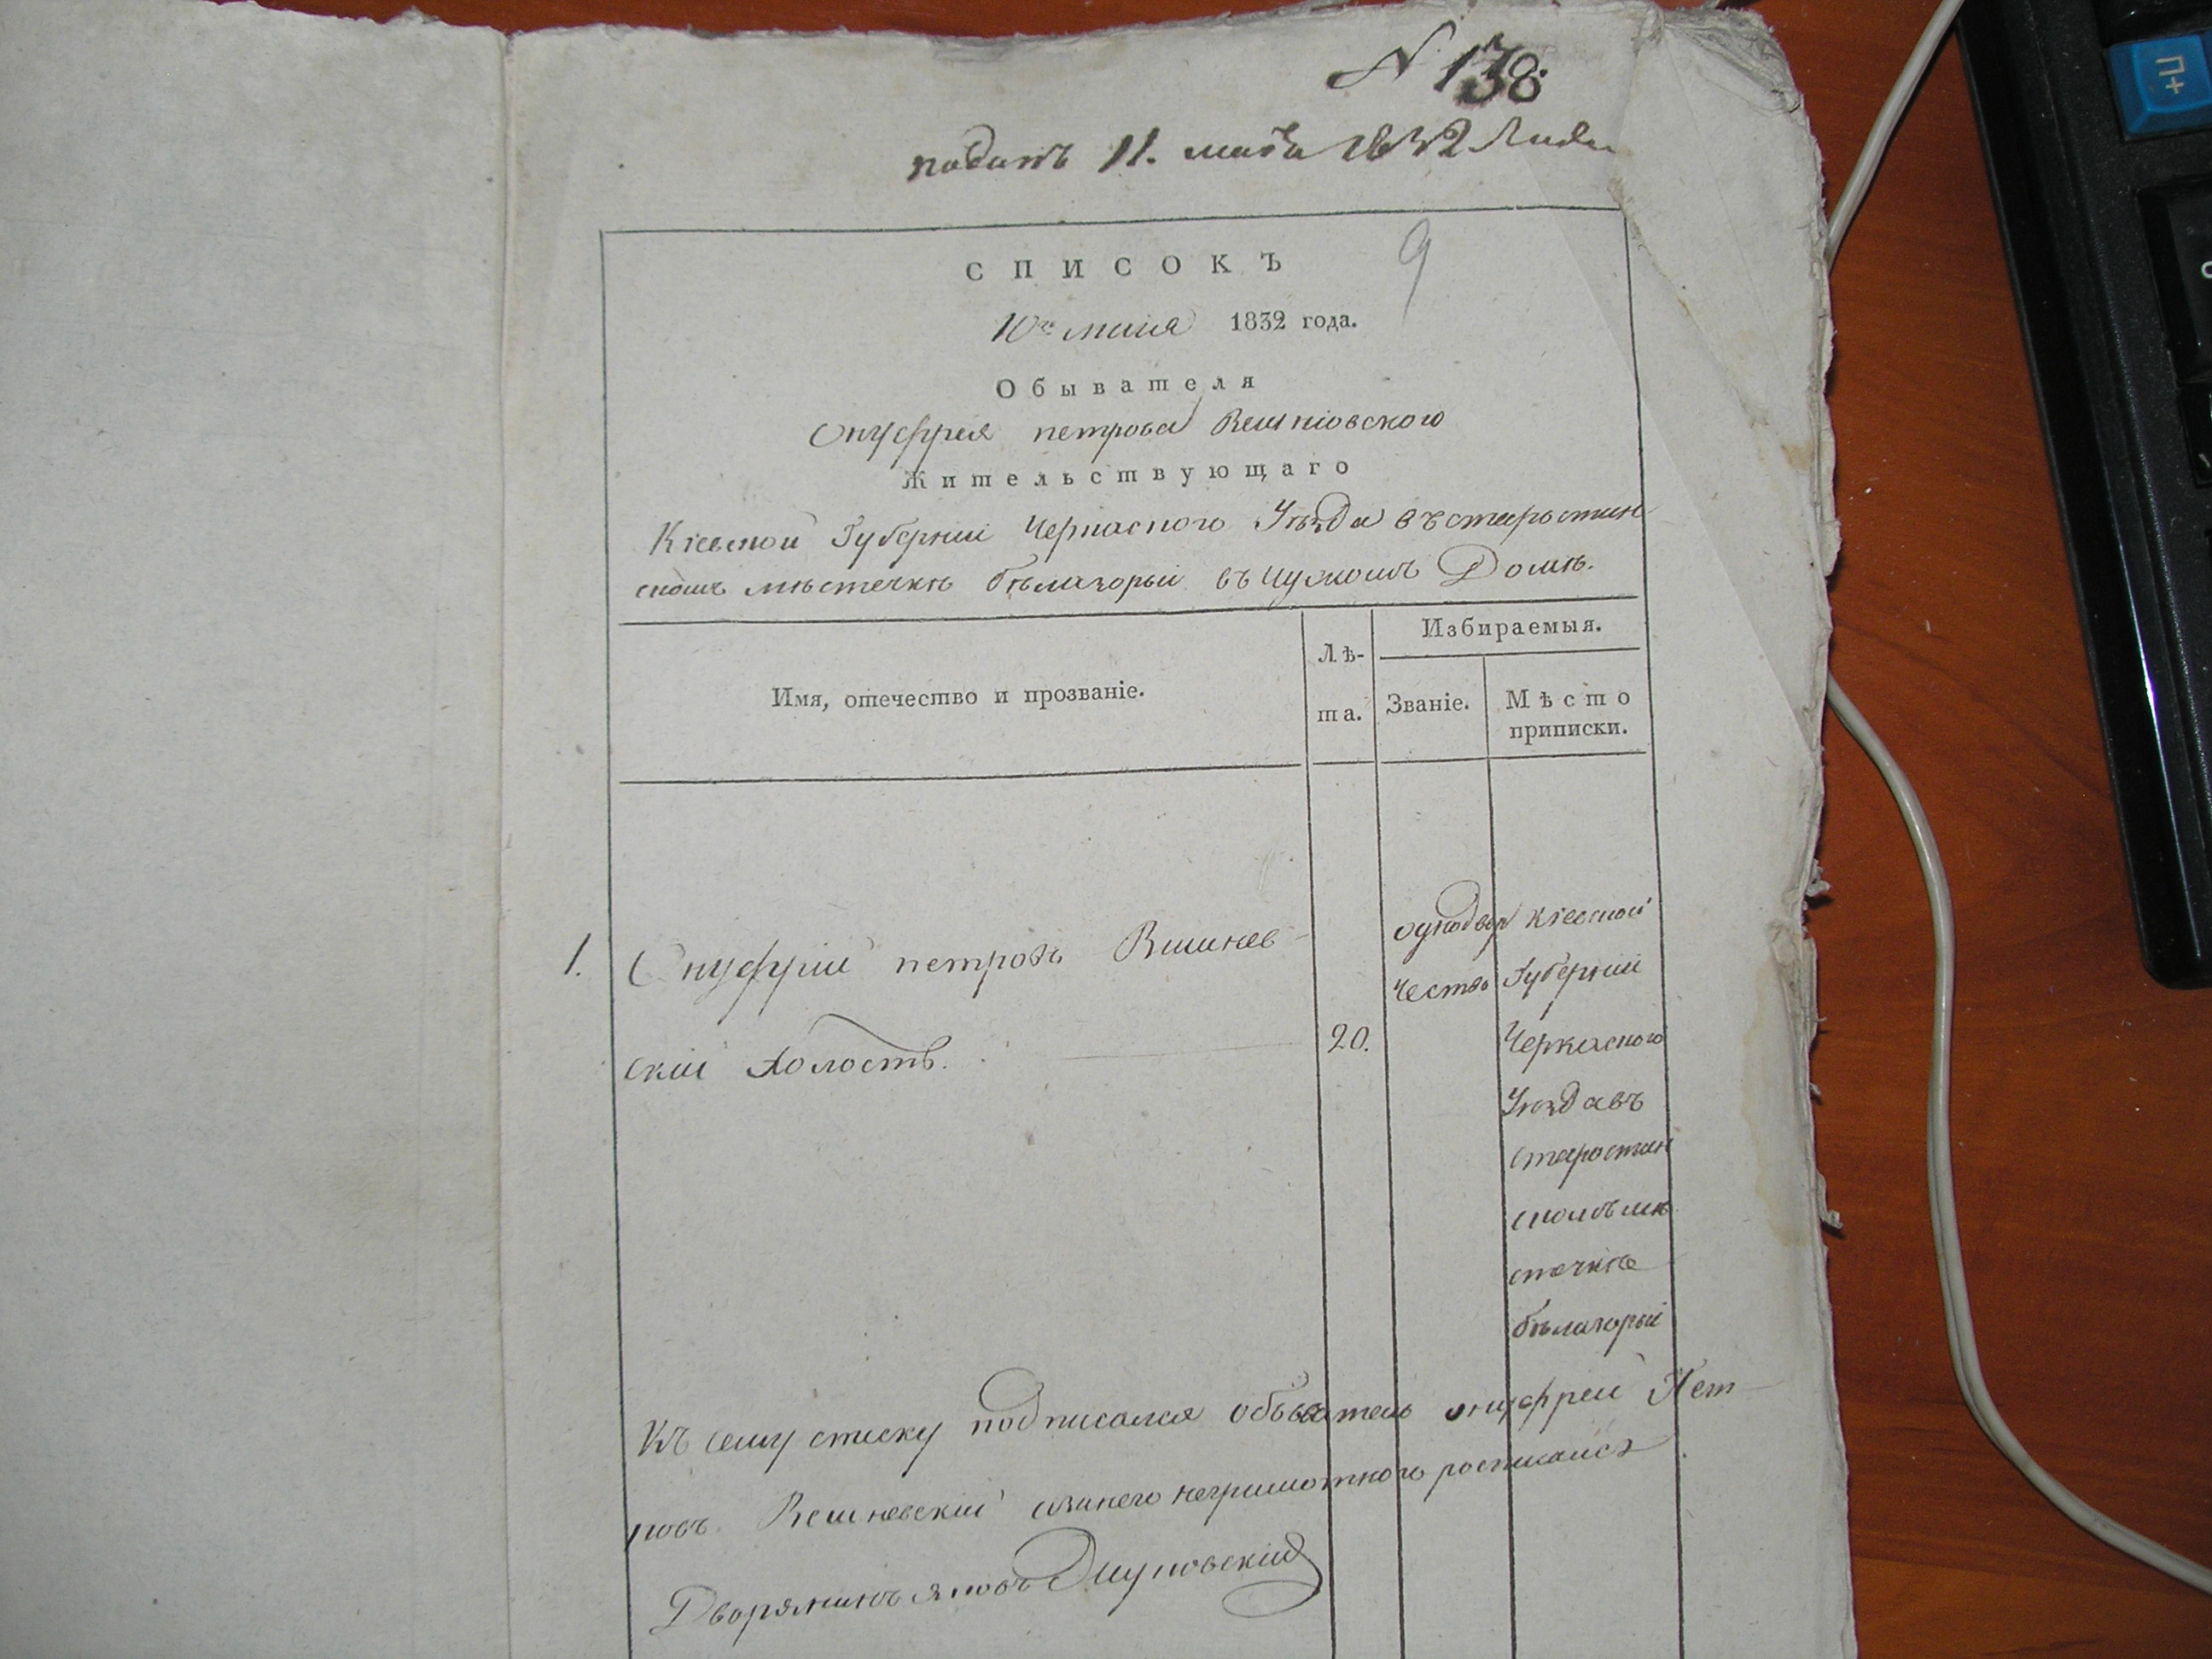 N 138.
поданъ 11. маія 1832 Года
9
СПИСОКЪ
10го маія 1832 года.
Обывателя
Онуфрея петрова Вешнiовского
Жительствующаго
Кіевской Губерніи Черкаского Уѣзда въ старостин
скомъ мѣстечкѣ бѣлазорьи въ чужомъ Домѣ.
Имя, отечество и прозваніе.
Лѣ-
та.
Избираемыя.
Званіе.
Мѣсто
приписки.
1. Онуфрій петровъ Вишнев-
скій холостъ.
20.
однодвор
чество
Кіевской
Губерніи
Черкаского
Уѣзда въ
старостин
скомъ мѣ
стечкѣ
бѣлазорьи
Къ сему списку подписался обыватель онуфрей Пет-
ровъ Вешневский занего неграмотного росписался
Дворянинъ яковъ
П+